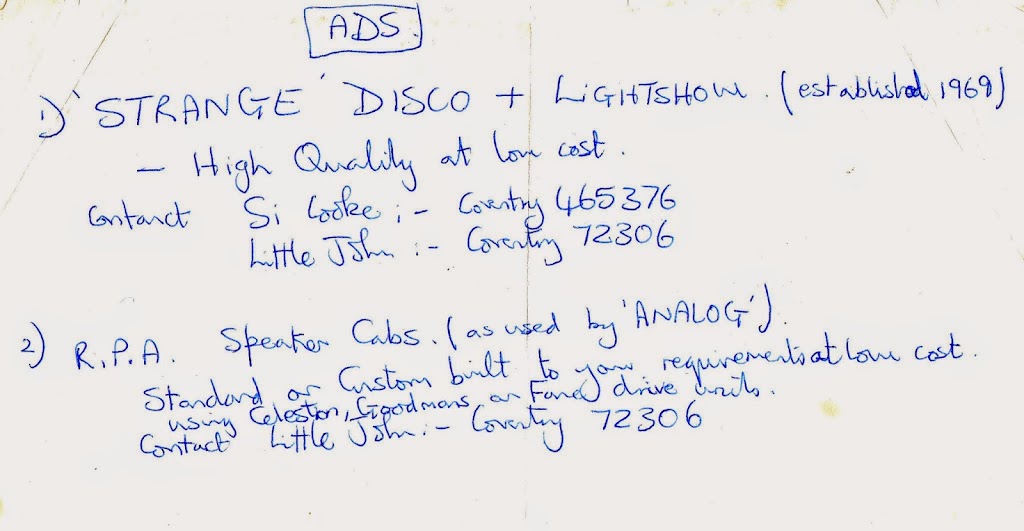 ADS.
1) 'STRANGE' DISCO + LiGHTSHOW. (established 1969)
- High Quality at low cost.
Contact Si Cooke :- Coventry 465376
Little John :- Coventry 72306
2) R.P.A. Speaker Cabs. (as used by 'ANALOG').
Standard or Custom built to your requirements at low cost.
using Celestion, Goodmans, or Fane drive units.
Contact Little John :- Coventry 72306